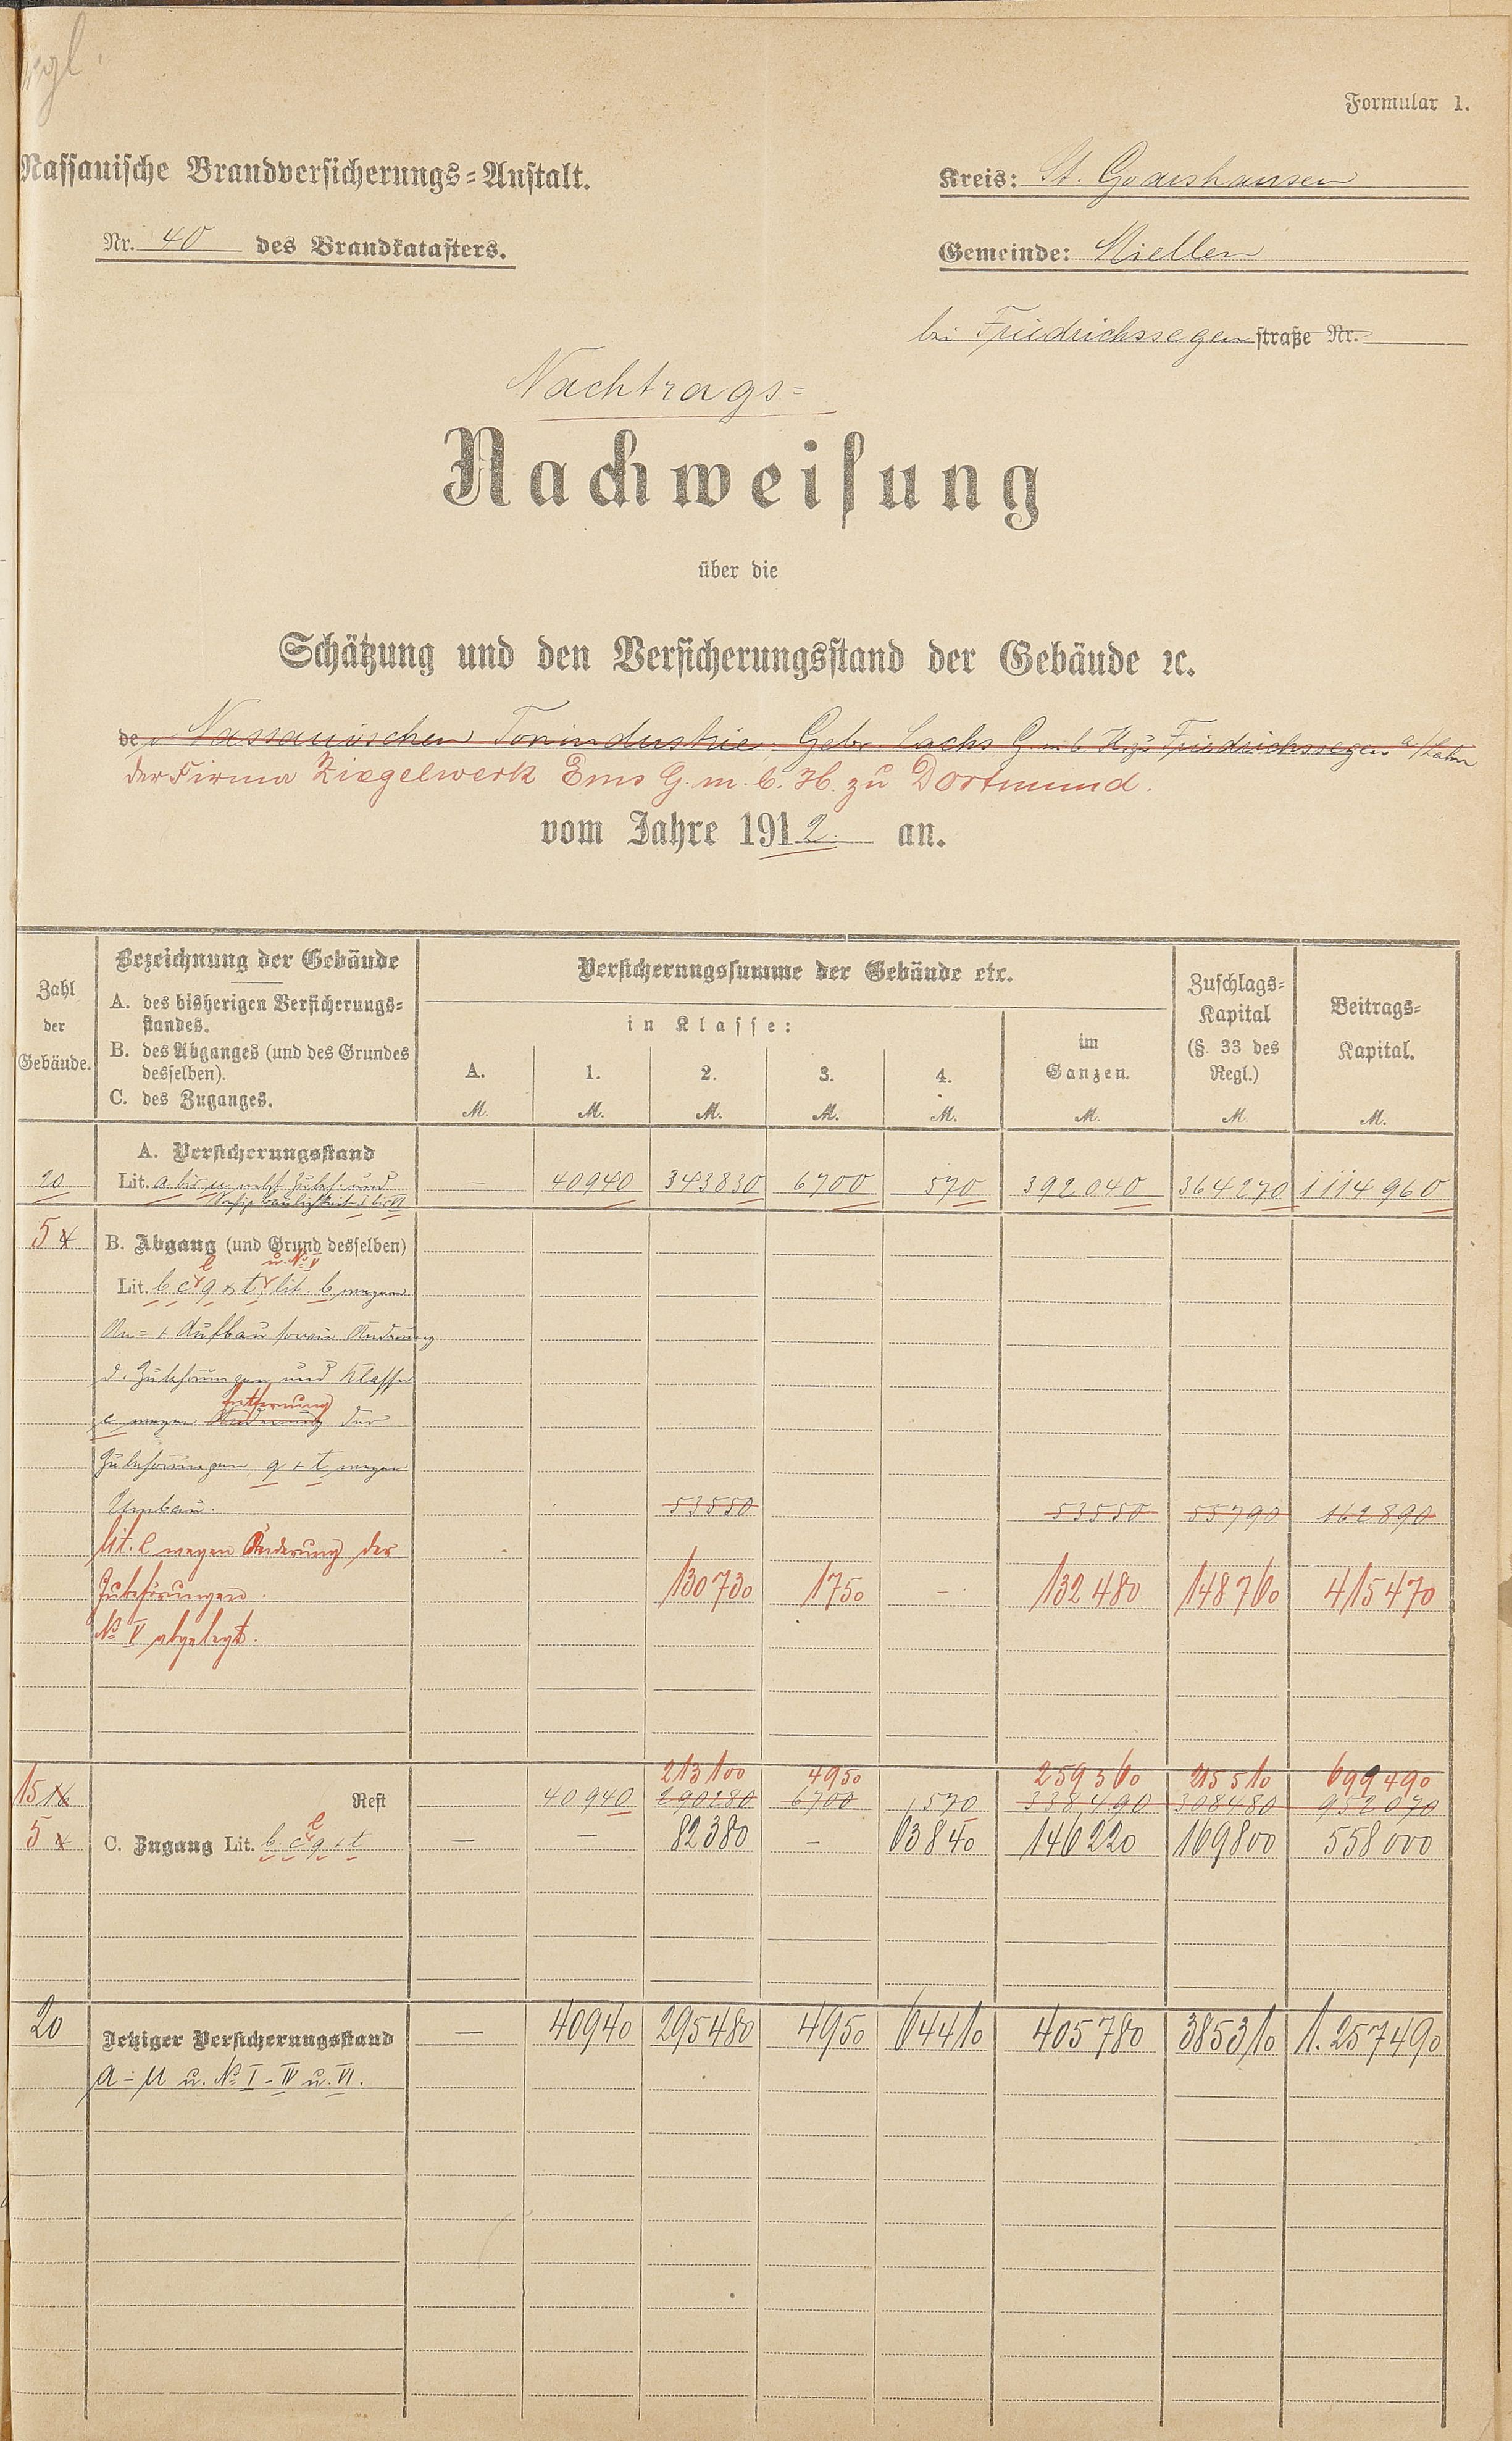 Formular 1.
Nassauische Brandversicherungs-Anstalt.
Kreis: St. Goarshausen
Nr. 40 des Brandkatasters.
Gemeinde: Miellen
bei Friedrichssegen straße Nr.
Nachtrags-
Nachweisung
über die
Schätzung und den Versicherungsstand der Gebäude ꝛc.
der Nassauischen Tonindustrie, Gebr. Lachs G. m. b. H. zu Friedrichssegen a/Lahn
der Firma Ziegelwerk Ems G. m. b. H. zu Dortmund.
vom Jahre 1912 an.
Zahl der Gebäude.
Bezeichnung der Gebäude
A. des bisherigen Versicherungs-
standes.
B. des Abganges (und des Grundes
desselben).
C. des Zuganges.
Versicherungssumme der Gebäude etc.
in Klasse:
A. 1. 2. 3. 4.
im Ganzen.
Zuschlags-Kapital (§. 33 des Regl.)
Beitrags-Kapital.
M. M. M. M. M. M. M. M.
A. Versicherungsstand
20 Lit. a bis u nebst Zubeh. und — 40940 343830 6700 570 392040 364270 1114960
5 4 B. Abgang (und Grund desselben)
l u. No V
Lit. b c q + t lit. b wegen
An- + Aufbau sowie Änderung
d. Zubehörungen und Klasse
Entfernung
c wegen Änderung der
Zubehörungen q + t wegen
Umbau. 53550 53550 55790 162890
lit. l wegen Änderung der
Zubehörungen. 130730 1750 — 132480 148760 415470
No V abgelegt.
213100 4950 259560 215510 699490
15 16 Rest 40940 290280 6700 570 338490 308480 952070
l
5 4 C. Zugang Lit. b. c q + t — — 82380 — 63840 146220 169800 558000
20 Jetziger Versicherungsstand — 40940 295480 4950 64410 405780 385310 1.257490
A - U u. No I - IV u. VI.